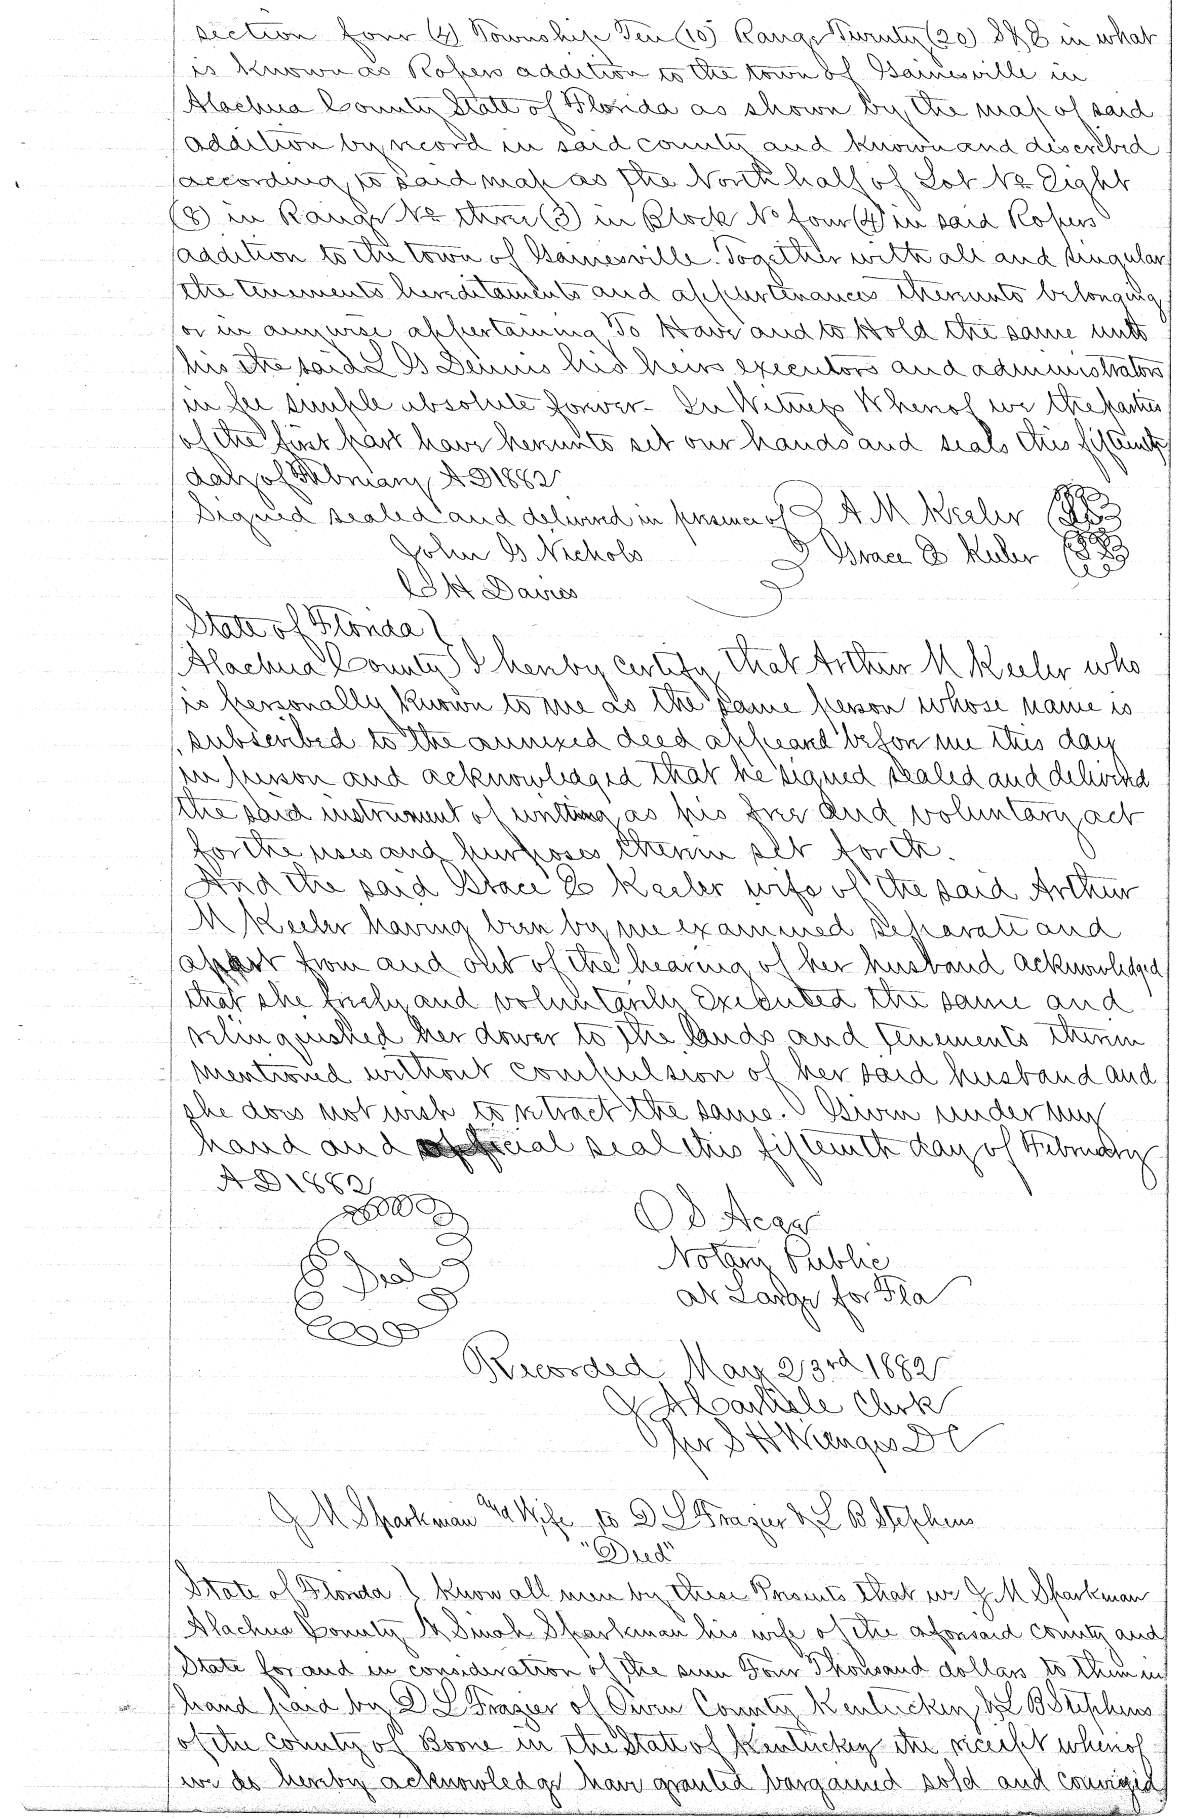 section four (4) Township Ten (10) Range Twenty (20) S & E in what
is known as Ropers addition to the town of Gainesville in
Alachua County State of Florida as shown by the map of said
addition by record in said county and known and described
according to said map as the North half of Lot No Eight
(8) in Range No three (3) in Block No four (4) in said Ropers
addition to the town of Gainesville. Together with all and singular
the tenements hereditaments and appurtenances thereunto belonging
or in anywise appertaining To Have and to Hold the same unto
his the said L G Dennis his heirs executors and administrators
in fee simple absolute forever - In Witness Whereof we the parties
of the first part have hereunto set our hands and seals this fifteenth
day of February AD 1882
Signed sealed and delivered in presence of A M Keeler
John G Nichols Grace E Keeler
C H Davies
State of Florida }
Alachua County } I hereby certify that Arthur M Keeler who
is personally known to me as the same person whose name is
subscribed to the annexed deed appeared before me this day
in person and acknowledged that he signed sealed and delivered
the said instrument of writing as his free and voluntary act
for the uses and purposes therein set forth.
And the said Grace E Keeler wife of the said Arthur
M Keeler having been by me examined separate and
apart from and out of the hearing of her husband acknowledged
that she freely and voluntarily executed the same and
relinquished her dower to the lands and tenements therein
mentioned without compulsion of her said husband and
she does not wish to retract the same. Given under my
hand and official seal this fifteenth day of February
AD 1882
Seal
O S Acar
Notary Public
at Large for Fla
Recorded May 23rd 1882
J A Carlisle Clerk
per S H Wienges D C
J M Sparkman and Wife to D L Frazier & L B Stephens
"Deed"
State of Florida } Know all men by these Presents that we J M Sparkman
Alachua County & Sinah Sparkman his wife of the aforesaid county and
State for and in consideration of the sum Four Thousand dollars to them in
hand paid by D L Frazier of Owen County Kentuckey & L B Stephens
of the county of Boone in the State of Kentuckey the receipt whereof
we do hereby acknowledge have granted bargained sold and conveyed